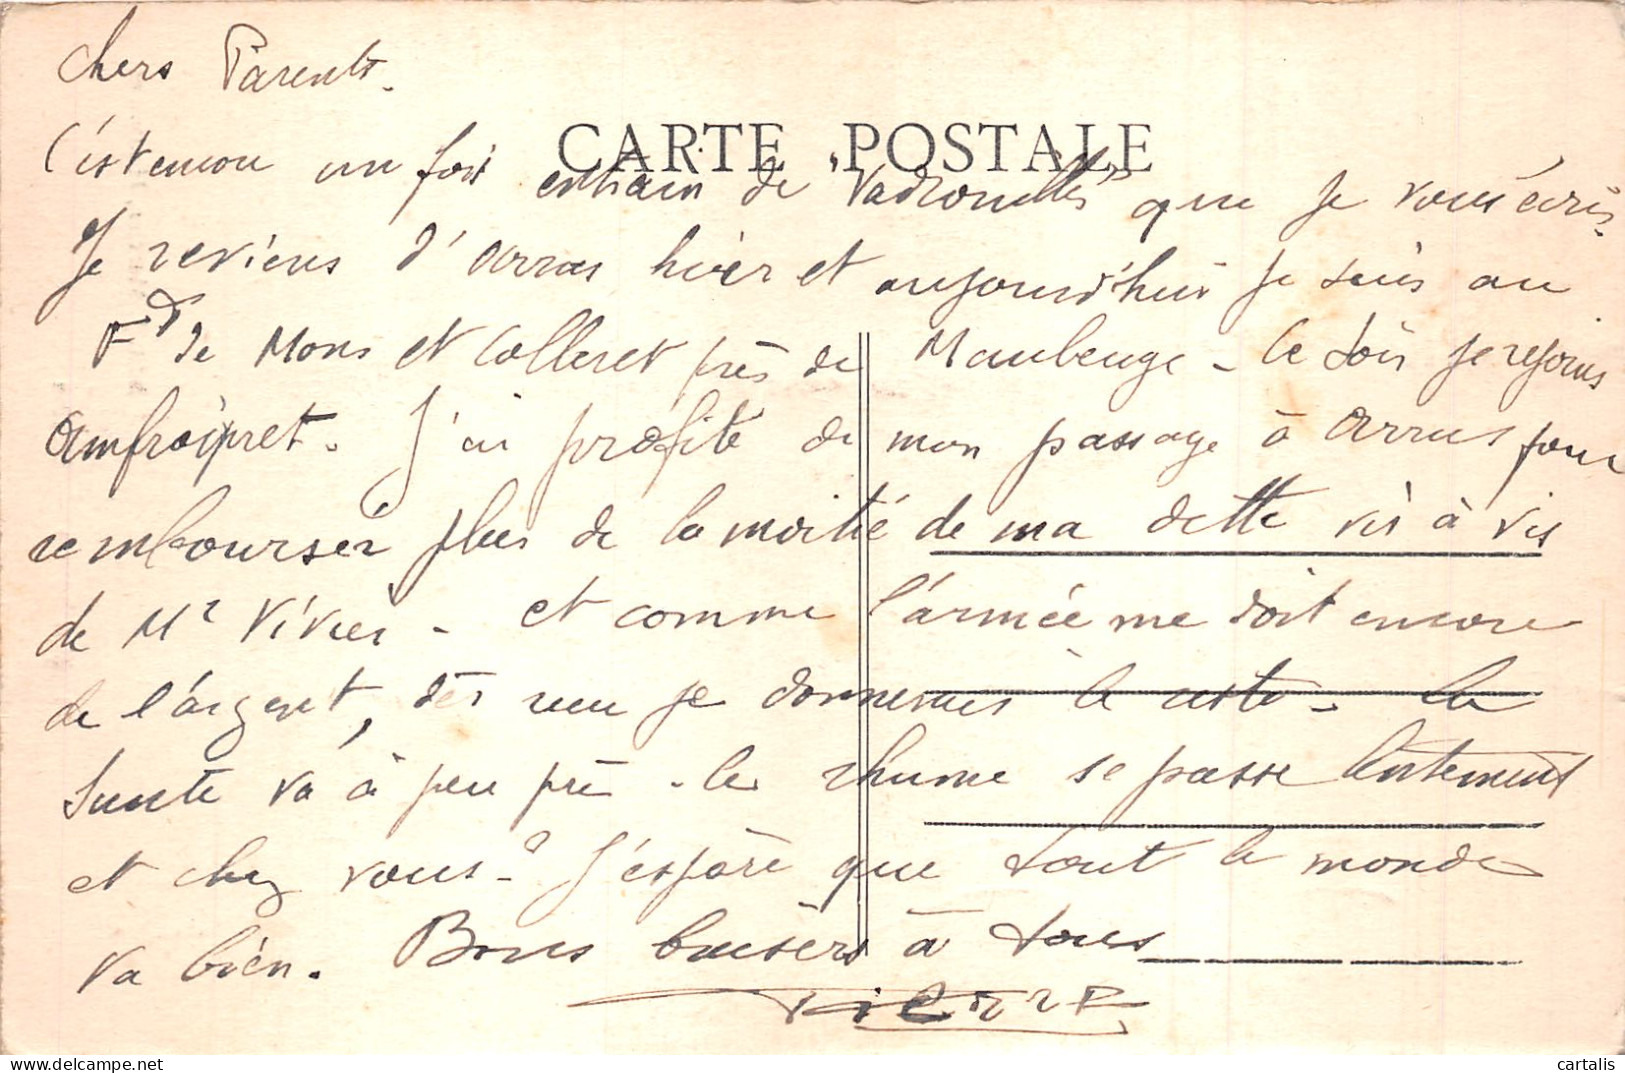 Chers Parents.
CARTE POSTALE
C'est encore un fois entrain de "Vadrouilles" que je vous écris.
Je reviens d'Arras hier et aujourd'hui je suis au
Fd de Mons et Colleret près de Maubeuge - Ce soir je rejoins
Amfroipret. J'ai profité de mon passage à Arras pour
rembourser plus de la moitié de ma dette vis à vis
de Mr Vivier - et comme l'armée me doit encore
de l'argent, dès reçu je donnerais le reste. La
Santé va à peu près - le rhume se passe lentement
et chez vous-? J'espère que tout le monde
va bien. Bons baisers à tous
Pierre
cartalis
www.delcampe.net